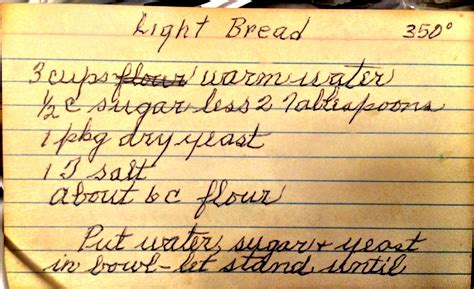 Light Bread 350°
3 cups flour warm water
1/2 c sugar less 2 Tablespoons
1 pkg dry yeast
1 T salt
about 6 c flour
Put water, sugar + yeast
in bowl - let stand until